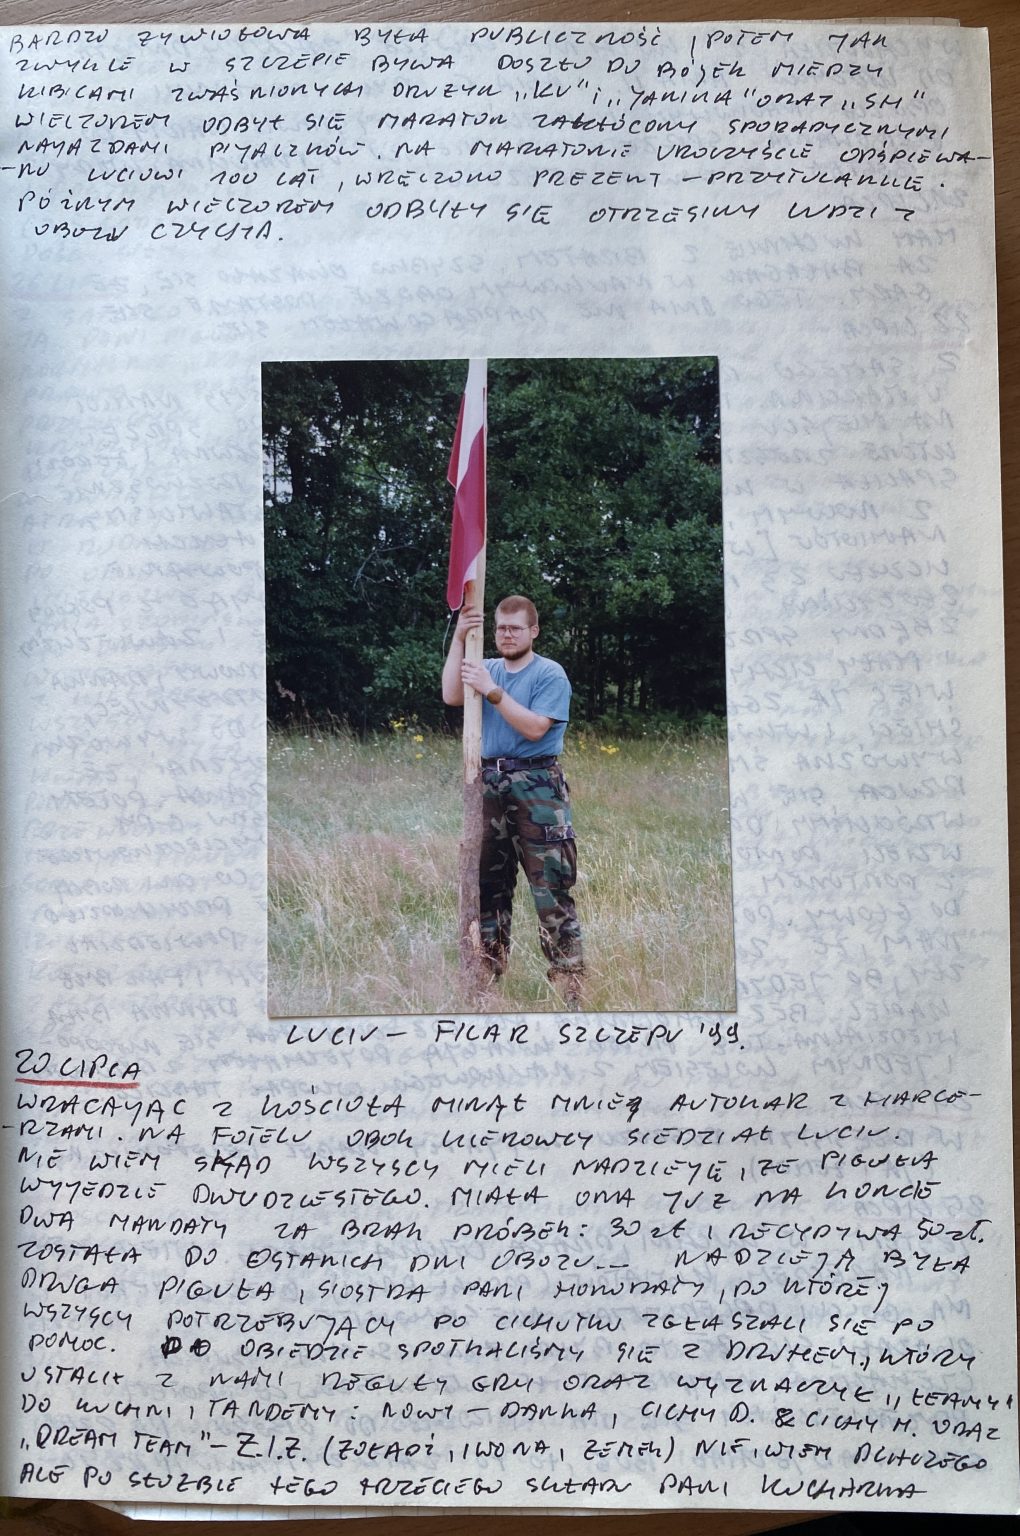 BARDZO ŻYWIOŁOWA BYŁA PUBLICZNOŚĆ, POTEM JAK
ZWYKLE W SZCZEPIE BYWA DOSZŁO DO BÓJEK MIĘDZY
KIBICAMI ZWAŚNIONYCH DRUŻYN „KU” i „JANINA” ORAZ „SM”
WIECZOREM ODBYŁ SIĘ MARATON ZAKŁÓCONY SPORADYCZNYMI
NAJAZDAMI PIJACZKÓW. NA MARATONIE UROCZYŚCIE ODŚPIEWA-
-NO LUCIOWI 100 LAT, WRĘCZONO PREZENT – PRZYTULANKĘ.
PÓŹNYM WIECZOREM ODBYŁY SIĘ OTRZĘSINY LUDZI Z
OBOZU CZYCHA.
LUCIU – FILAR SZCZEPU '99.
20 LIPCA
WRACAJĄC Z KOŚCIOŁA MINĄŁ MNIE AUTOKAR Z HARCE-
-RZAMI. NA FOTELU OBOK KIEROWCY SIEDZIAŁ LUCIU.
NIE WIEM SKĄD WSZYSCY MIELI NADZIEJĘ, ŻE PIGUŁA
WYJEDZIE DWUDZIESTEGO. MIAŁA ONA JUŻ NA KONCIE
DWA MANDATY ZA BRAK PRÓBEK: 30 zł I RECYDYWA 50 zł.
ZOSTAŁA DO OSTANICH DNI OBOZU... NADZIEJĄ BYŁA
DRUGA PIGUŁA, SIOSTRA PANI HONORATY, DO KTÓREJ
WSZYSCY POTRZEBUJĄCY PO CICHUTKU ZGŁASZALI SIĘ PO
POMOC. PO OBIEDZIE SPOTKALIŚMY SIĘ Z DRUHEM, KTÓRY
USTALIŁ Z NAMI REGUŁY GRY ORAZ WYZNACZYŁ „TEAMY”
DO KUCHNI, TANDEMY: NOWY – DANKA, CICHY D. & CICHY M. ORAZ
„DREAM TEAM” – Z.I.Z. (ŻOŁĄDŹ, IWONA, ZEMEK) NIE WIEM DLACZEGO
ALE PO SŁUŻBIE TEGO TRZECIEGO SKŁADU PANI KUCHARKA